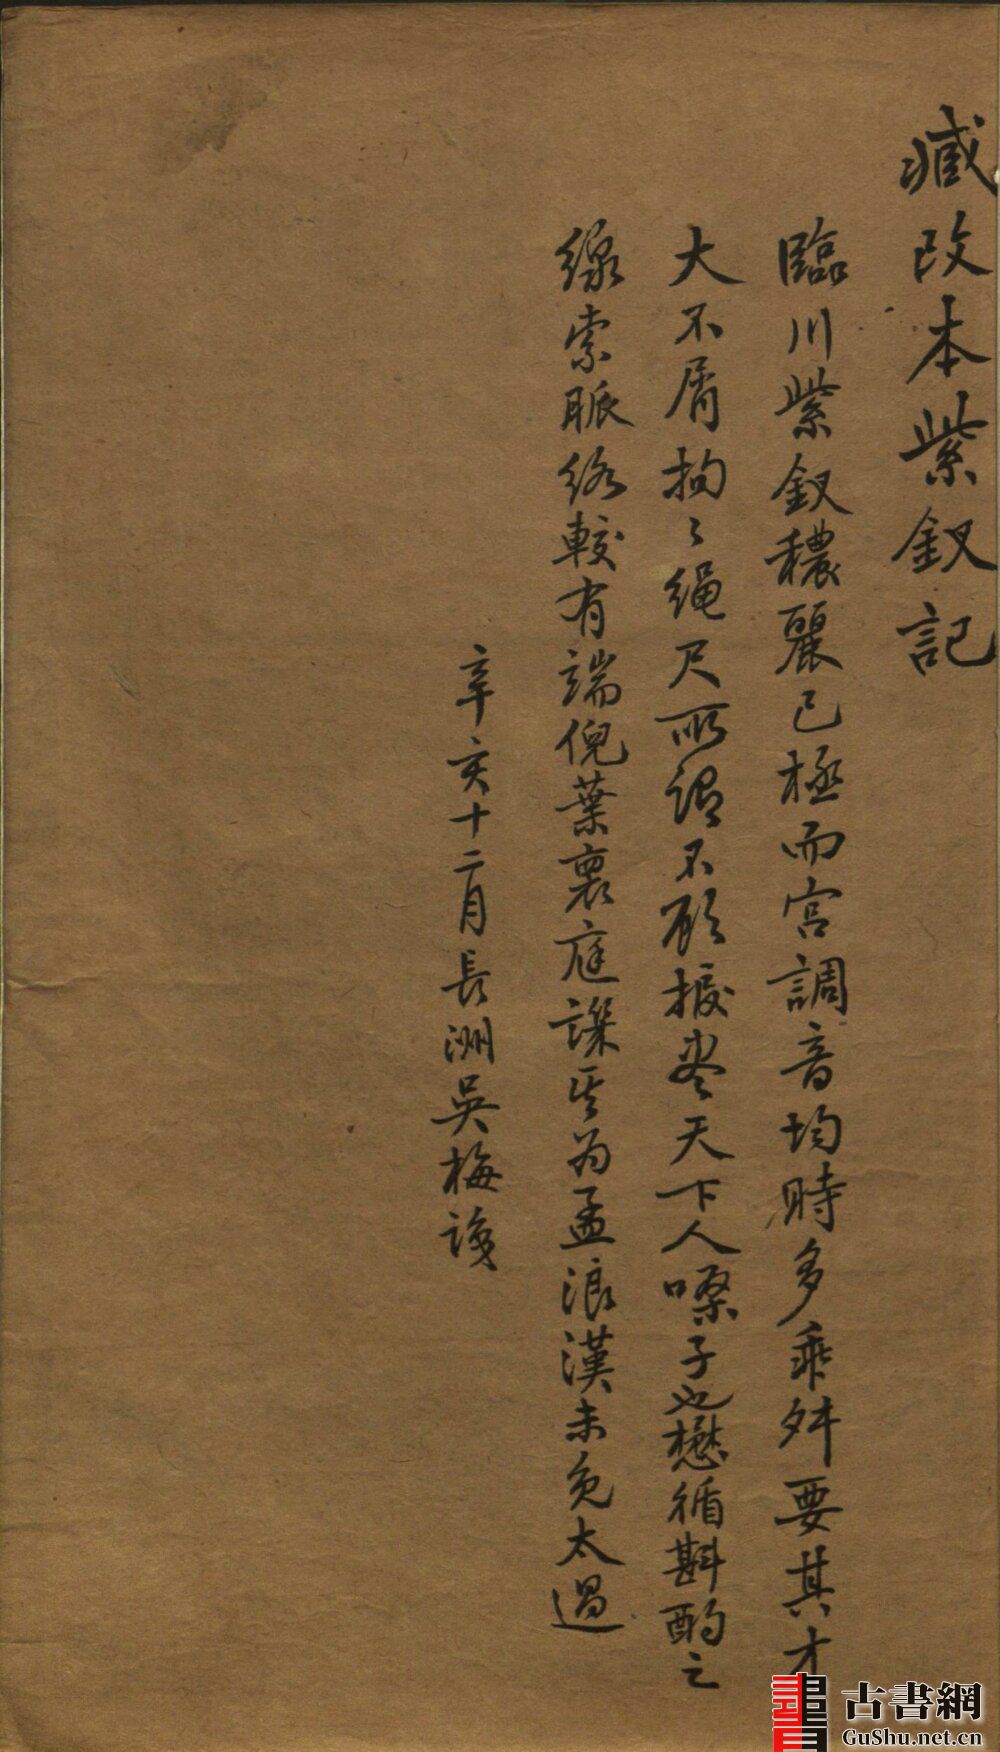 臧改本紫釵記
臨川紫釵穠麗已極而宫調音均時多乖舛要其才
大不屑拘〻繩尺所謂不顧捩盡天下人嗓子也懋循斟酌之
線索脈絡較有端倪葉裏庭譔斥為孟浪漢未免太過
辛亥十二月長洲吳梅識
古書網
GuShu.net.cn